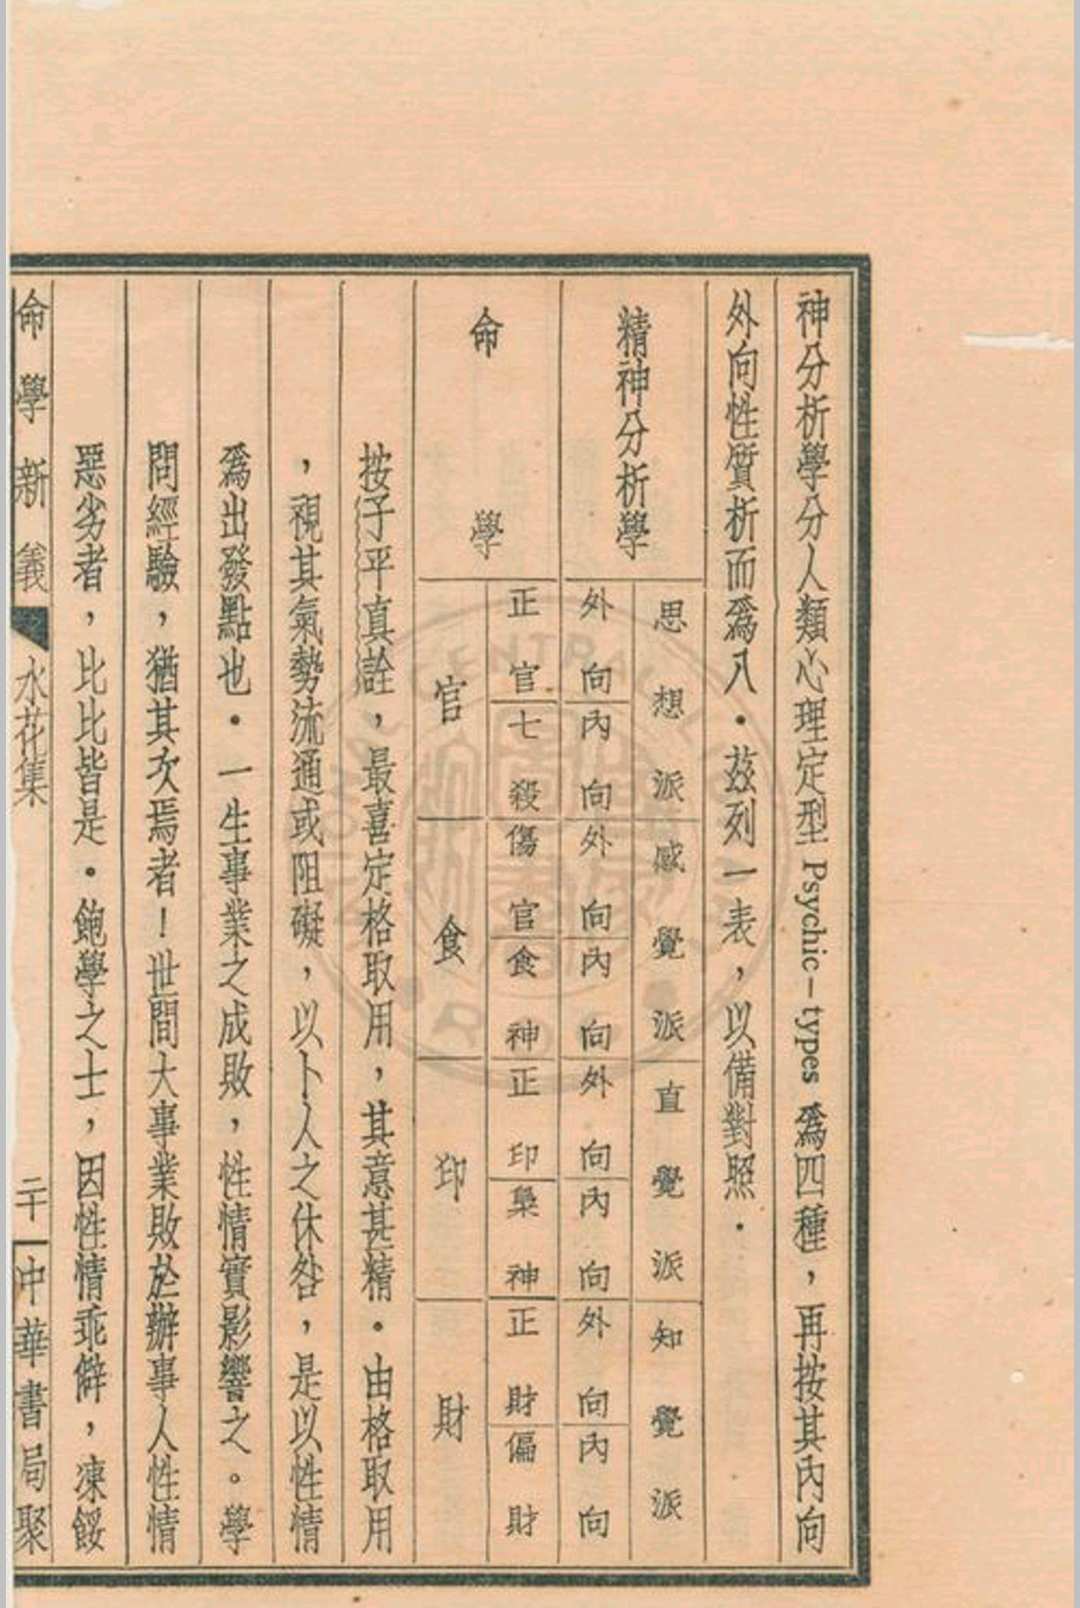 神分析學分人類心理定型 Psychic-types 爲四種，再按其內向
外向性質析而爲八．茲列一表，以備對照．
精神分析學
思想派 感覺派 直覺派 知覺派
外向 內向 外向 內向 外向 內向 外向 內向
命學
正官 七殺 傷官 食神 正印 梟神 正財 偏財
官 食 印 財
按子平真詮，最喜定格取用，其意甚精．由格取用
，視其氣勢流通或阻礙，以卜人之休咎，是以性情
爲出發點也．一生事業之成敗，性情實影響之。學
問經驗，猶其次焉者！世間大事業敗於辦事人性情
惡劣者，比比皆是．飽學之士，因性情乖僻，凍餒
命學新義 水花集 二十 中華書局聚